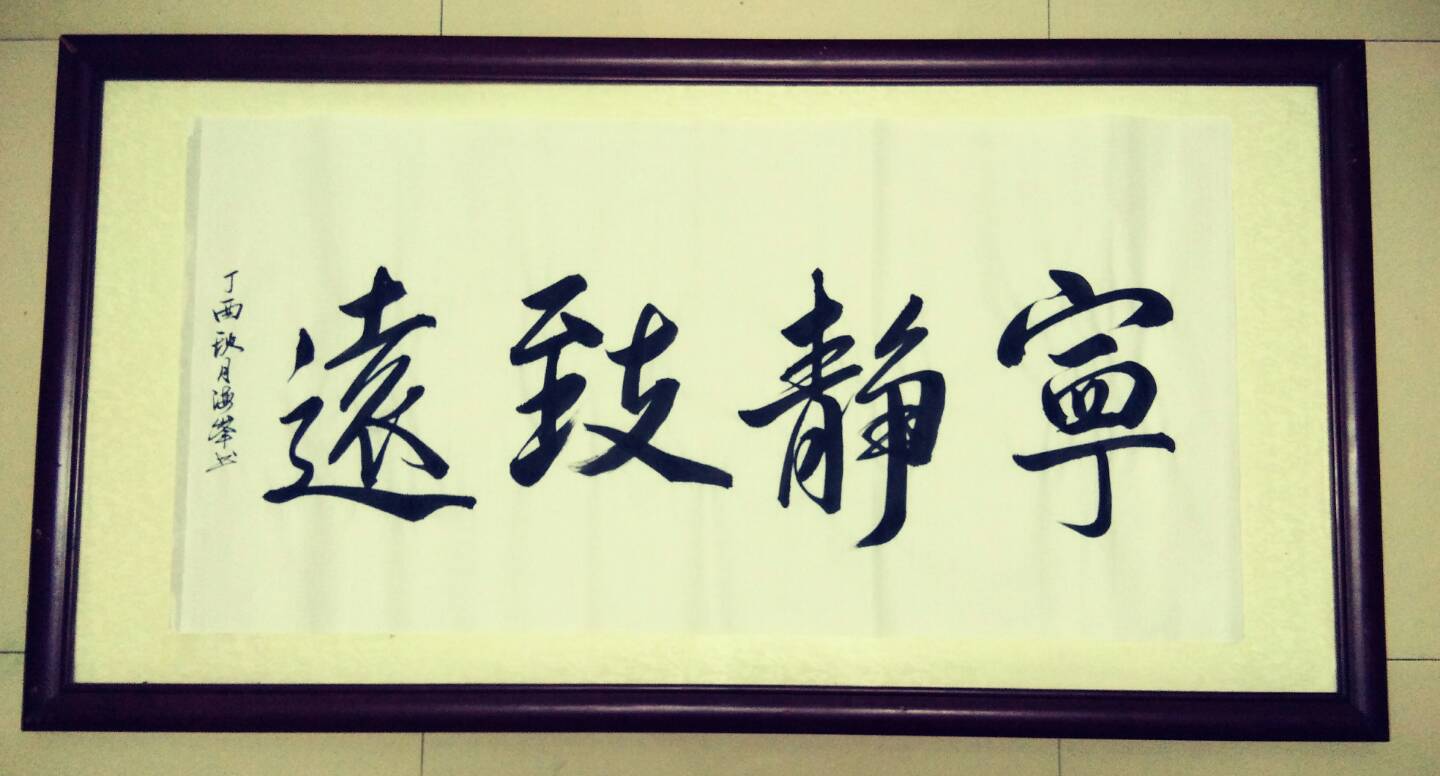 寧靜致遠
丁酉秋月海峰书